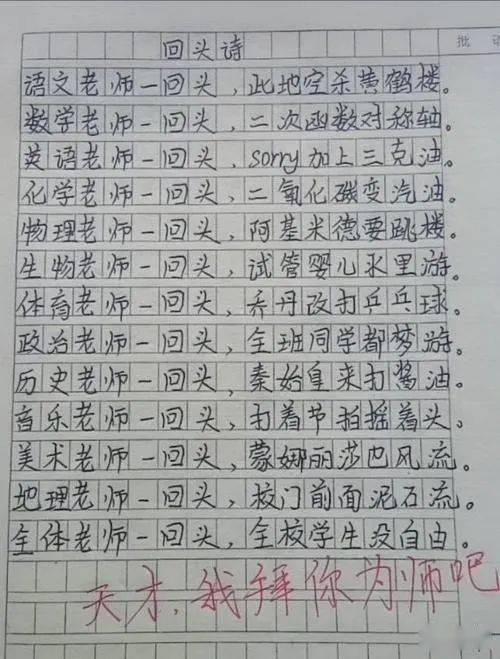 回头诗
批
语文老师一回头，此地空杀黄鹤楼。
数学老师一回头，二次函数对称轴。
英语老师一回头，sorry加上三克油。
化学老师一回头，二氧化碳变汽油。
物理老师一回头，阿基米德要跳楼。
生物老师一回头，试管婴儿水里游。
体育老师一回头，乔丹改打乒乓球。
政治老师一回头，全班同学都梦游。
历史老师一回头，秦始皇来打酱油。
音乐老师一回头，打着节拍摇着头、
美术老师一回头，蒙娜丽莎也风流。
地理老师一回头，校门前面泥石流。
全体老师一回头，全校学生没自由。
天才，我拜你为师吧